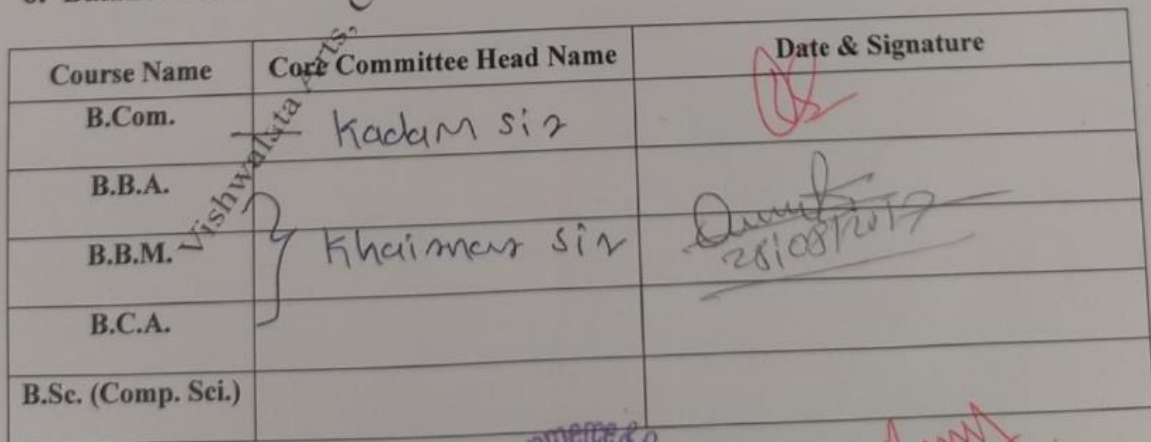 Course Name Core Committee Head Name Date & Signature
B.Com. Kadam Sir
B.B.A.
B.B.M. Khairnar Sir 28/08/2017
B.C.A.
B.Sc. (Comp. Sci.)
Vishwalata Arts,